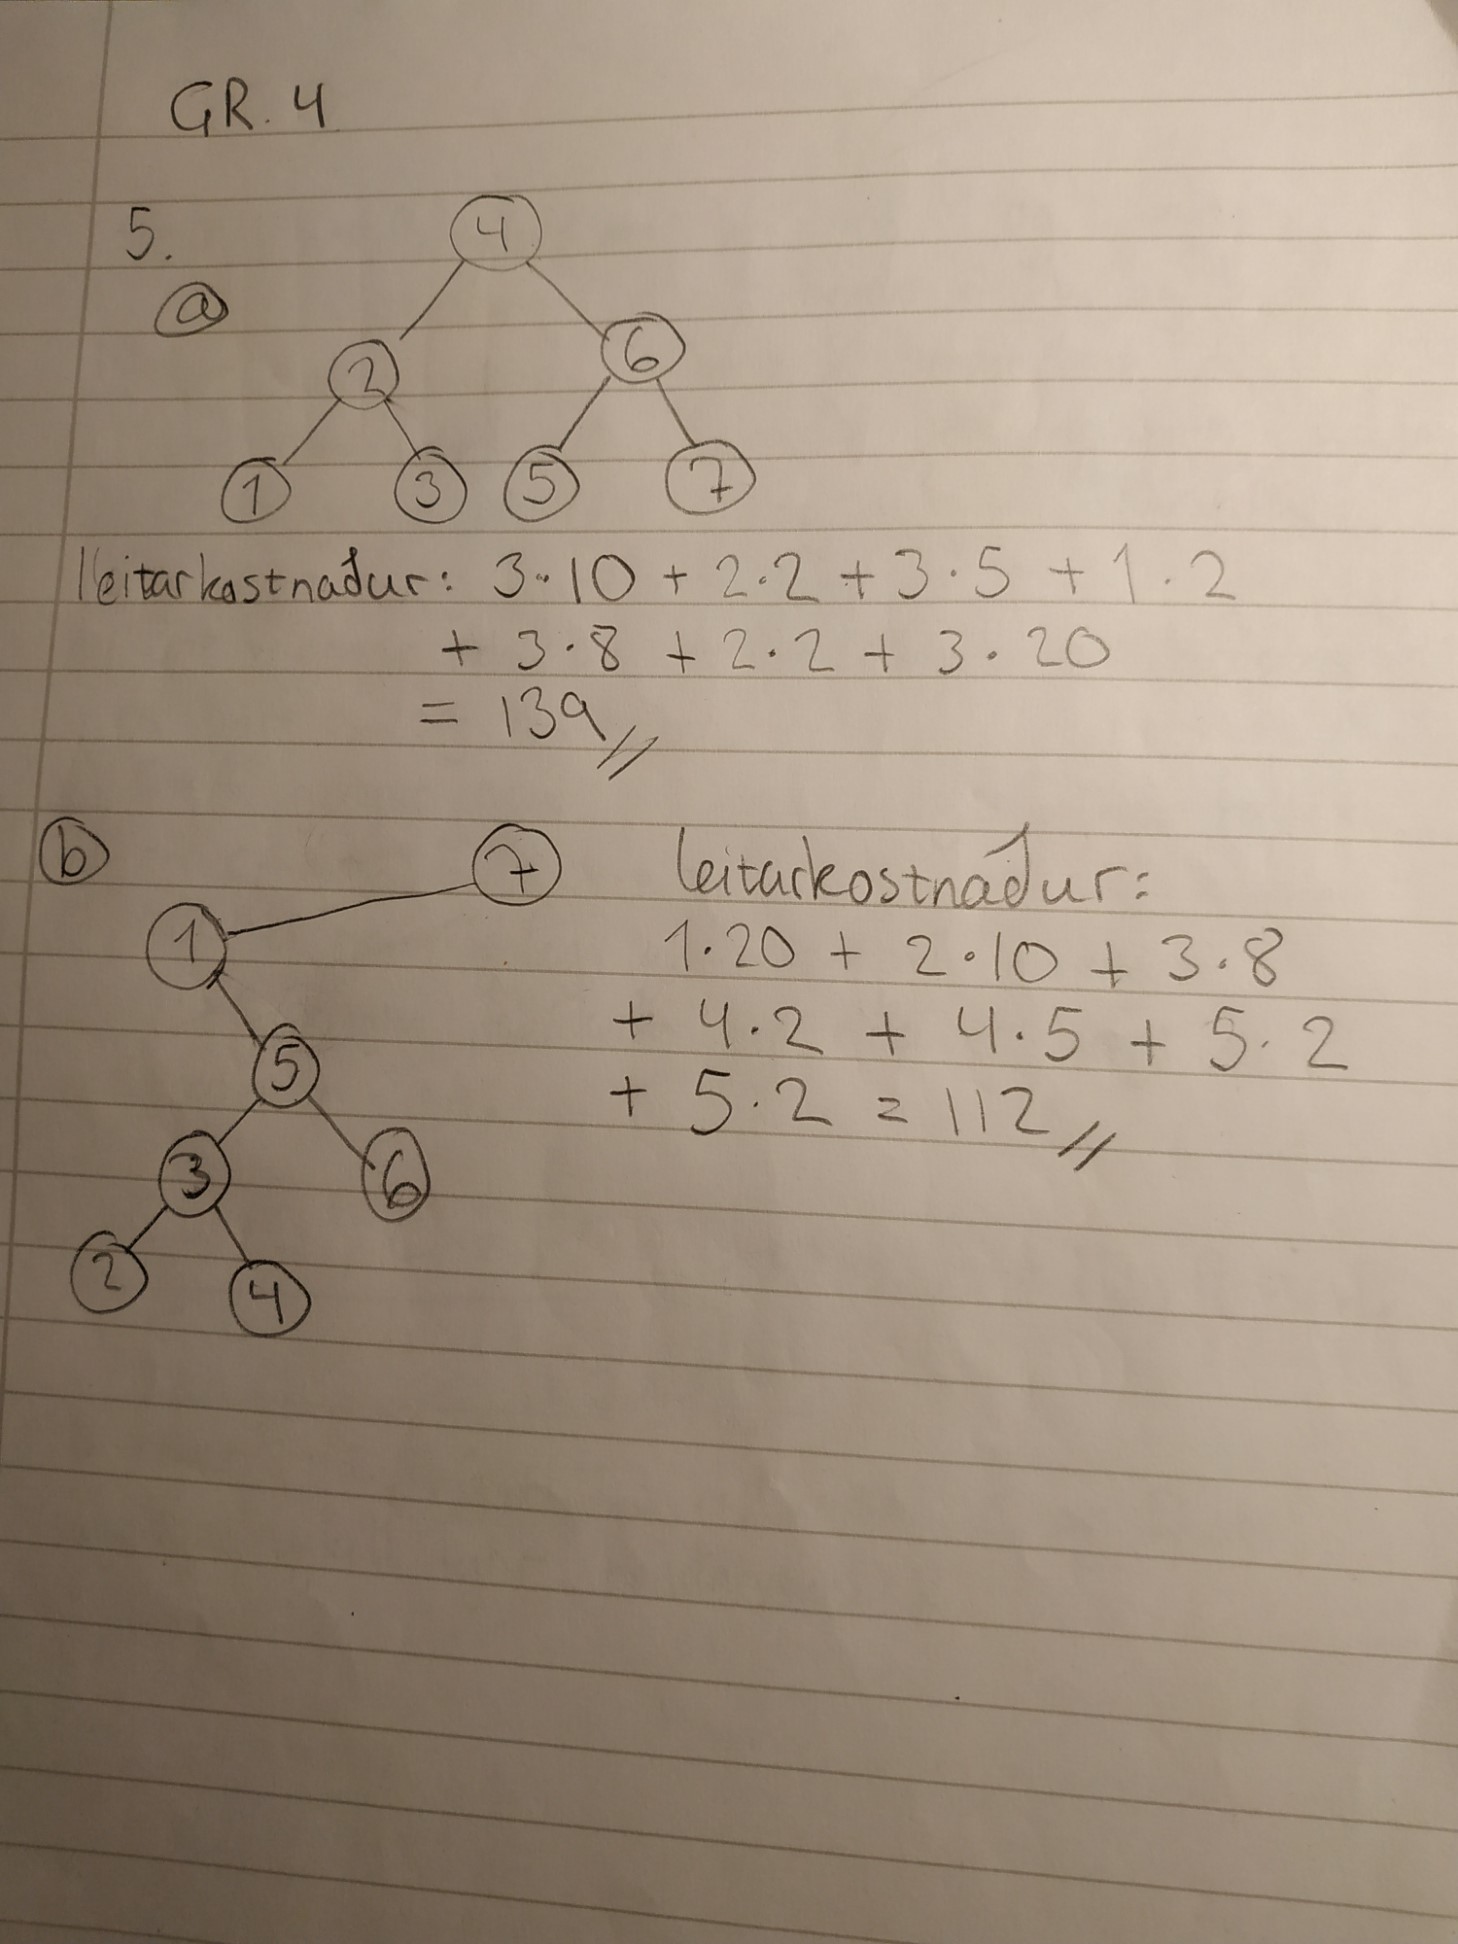 GR. 4
5.
4
a
2 6
1 3 5 7
leitarkostnaður: 3·10 + 2·2 + 3·5 + 1·2
+ 3·8 + 2·2 + 3·20
= 139
b 7 leitarkostnaður:
1 1·20 + 2·10 + 3·8
5 + 4·2 + 4·5 + 5·2
+ 5·2 = 112
3 6
2 4